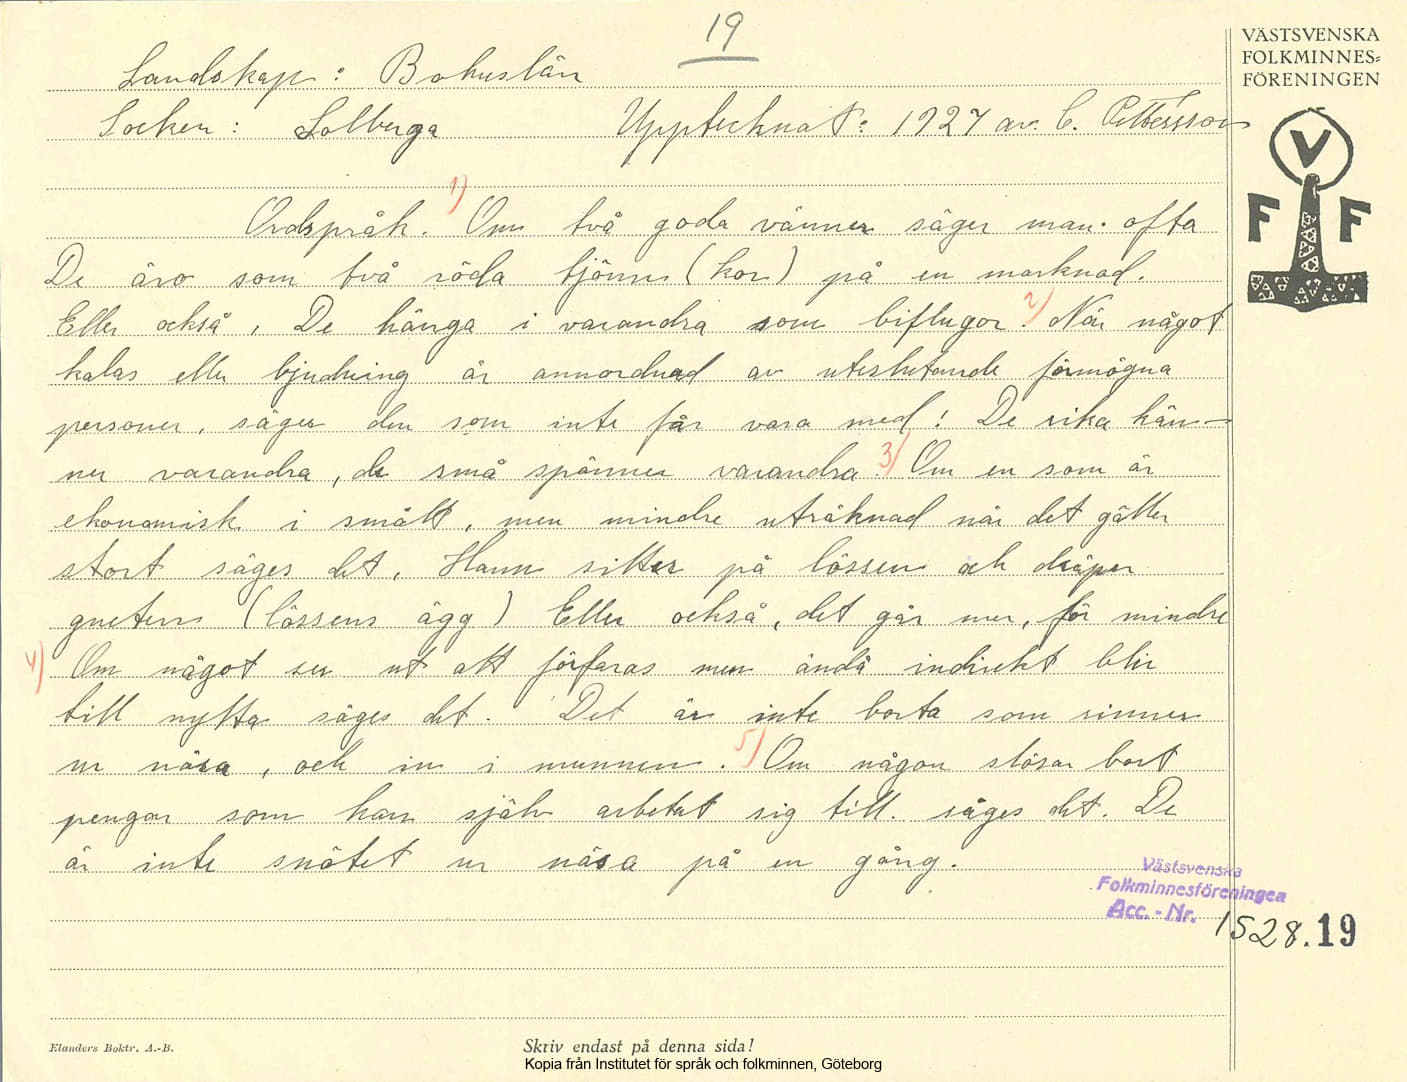 19
VÄSTSVENSKA
FOLKMINNES=
FÖRENINGEN
Landskap: Bohuslän
Socken: Solberga Upptecknat: 1927 av. C. Pettersson
V
F F
Ordspråk. 1) Om två goda vänner säger man ofta
De äro som två röda tjörer (kor) på en marknad.
Eller också, De hänga i varandra som biflugor. 2) När något
kalas eller bjudning är annordnad av uteslutande förmögna
personer, säger den som inte får vara med! De rika kän-
ner varandra, de små spänner varandra. 3) Om en som är
ekonomisk i smått, men mindre uträknad när det gäller
stort säges det, Hann sitter på lössen och dräper
gneten (lössens ägg) Eller också, det går mer, för mindre
4) Om något ser ut att förfaras men ändå indirekt blir
till nytta säges det. Det är inte borta som rinner
ur näsa, och in i munnen. 5) Om någon slösar bort
pengar som han själv arbetat sig till. säges det. De
är inte snötet ur näsa på en gång.
Västsvenska
Folkminnesföreningen
Acc. - Nr. 1528.19
Elanders Boktr. A.-B.
Skriv endast på denna sida!
Kopia från Institutet för språk och folkminnen, Göteborg